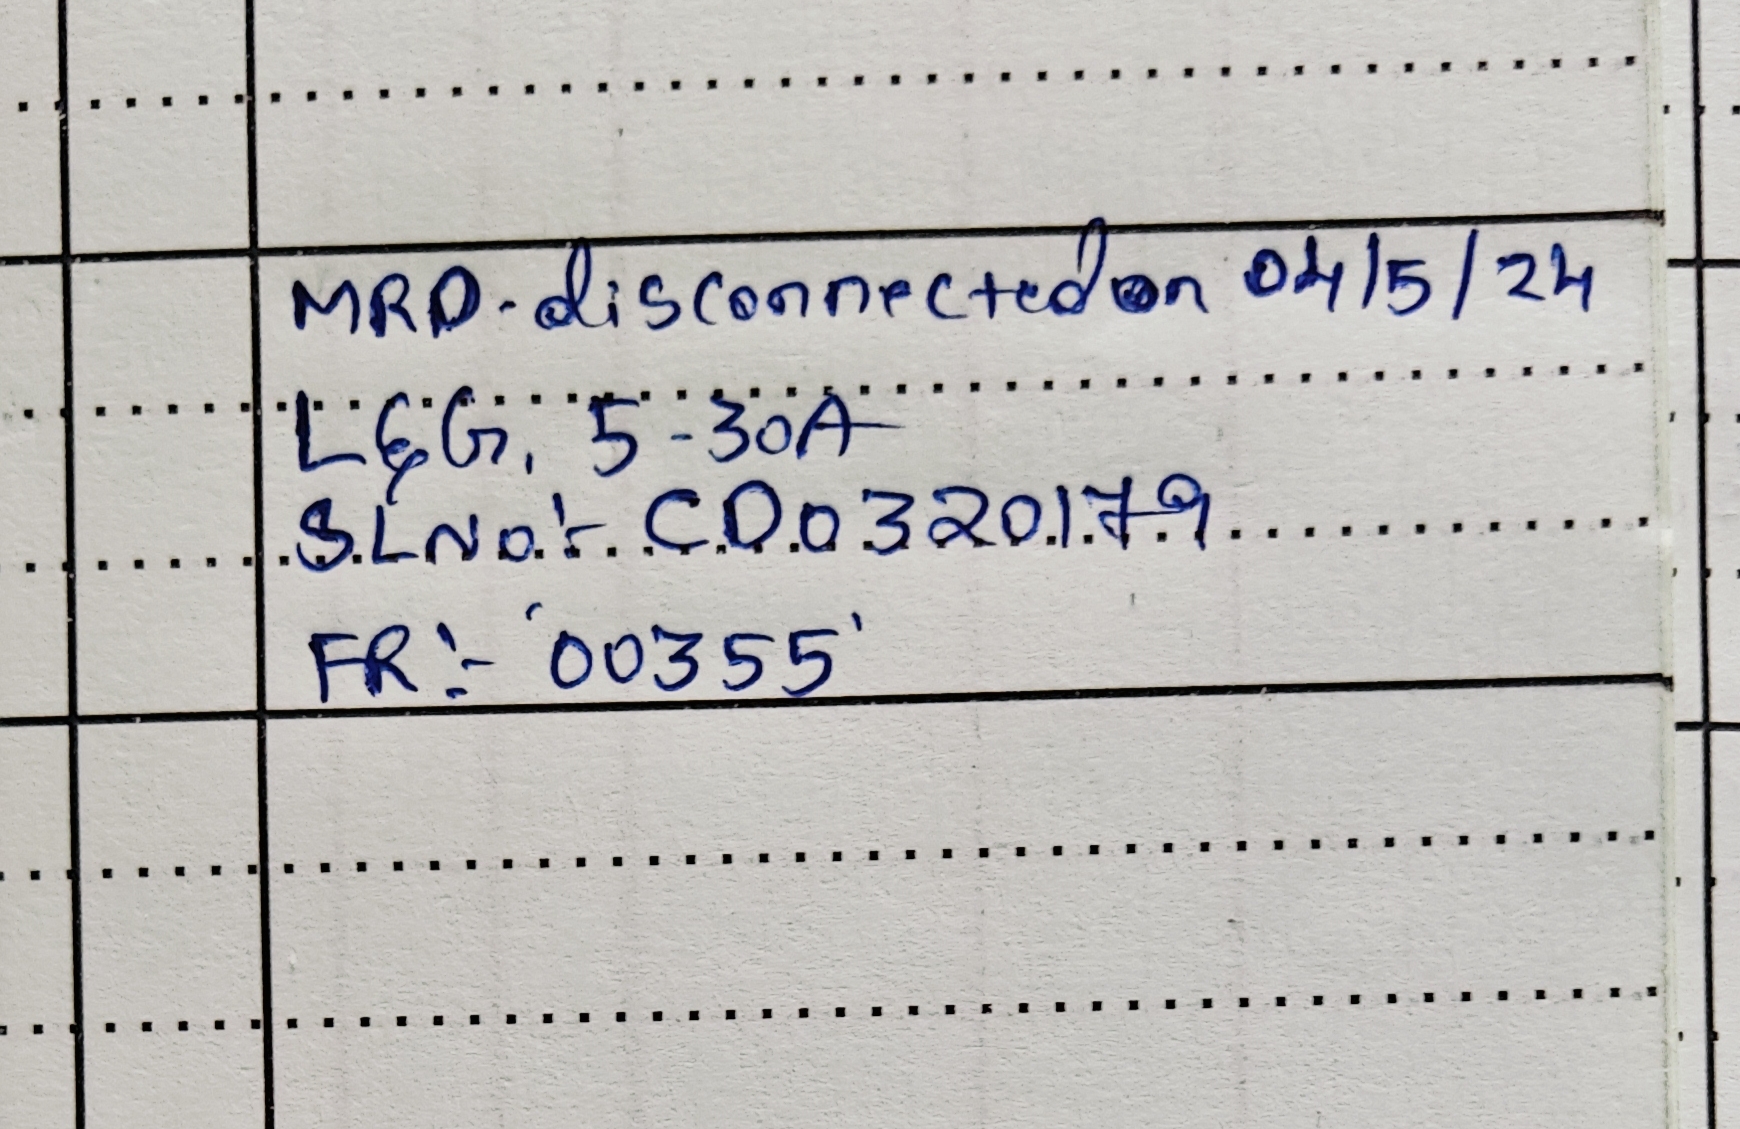 MRD-disconnected on 04/5/24
L&G, 5-30A
S.L No:- CD0320179
FR:- '00355'